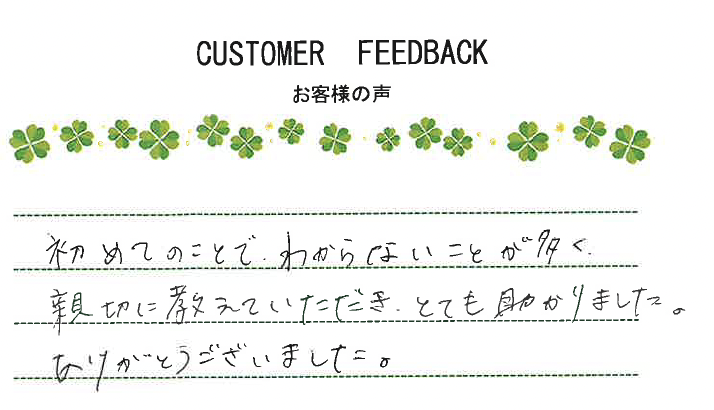 CUSTOMER FEEDBACK
お客様の声
初めてのことで、わからないことが多く、
親切に教えていただき、とても助かりました。
ありがとうございました。